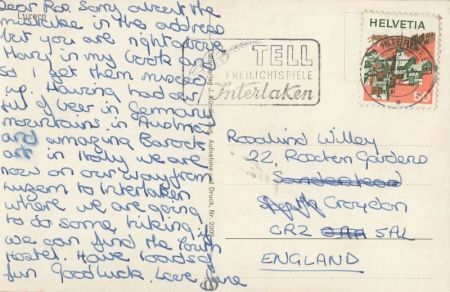 Luzern
Dear Roz Sorry about the
mistake in the address
but you are right above
Mary in my book and
so I get them muddled
up. Having had our
full of beer in Germany
mountains in Austria
and amazing Barock
art in Italy we are
now on our way from
Luzern to Interlaken
where we are going
to do some hiking if
we can find the Youth
Hostel. Have loads of
fun Good luck. Love Jane
TELL
FREILICHTSPIELE
Interlaken
HELVETIA
INTERLAKEN
50
Rosalind Willey
22, Roxton Gardens
Sanderstead
Croydon
CR2 5AL
ENGLAND